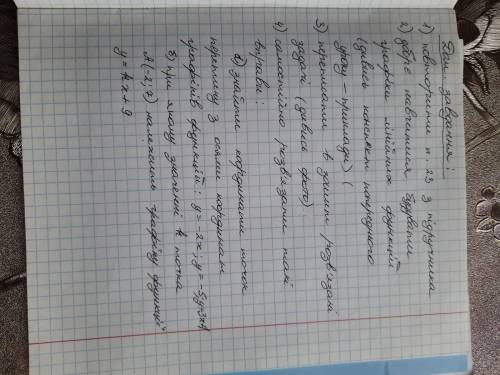 Дом. завдання:
1) повторити п. 23 з підручника
2) добре навчитися будувати
графіки лінійних функцій
(дивись конспект попереднього
уроку – приклади) (
3) переписати в зошит розв'язані
задачі (дивись фото)
4) самостійно розв'язати такі
вправи:
а) знайти координати точок
перетину з осями координат
графіків функцій: y = -2x; y =
б) при якому значенні k точка
A(-2; 7) належить графіку функції
y = kx + 9